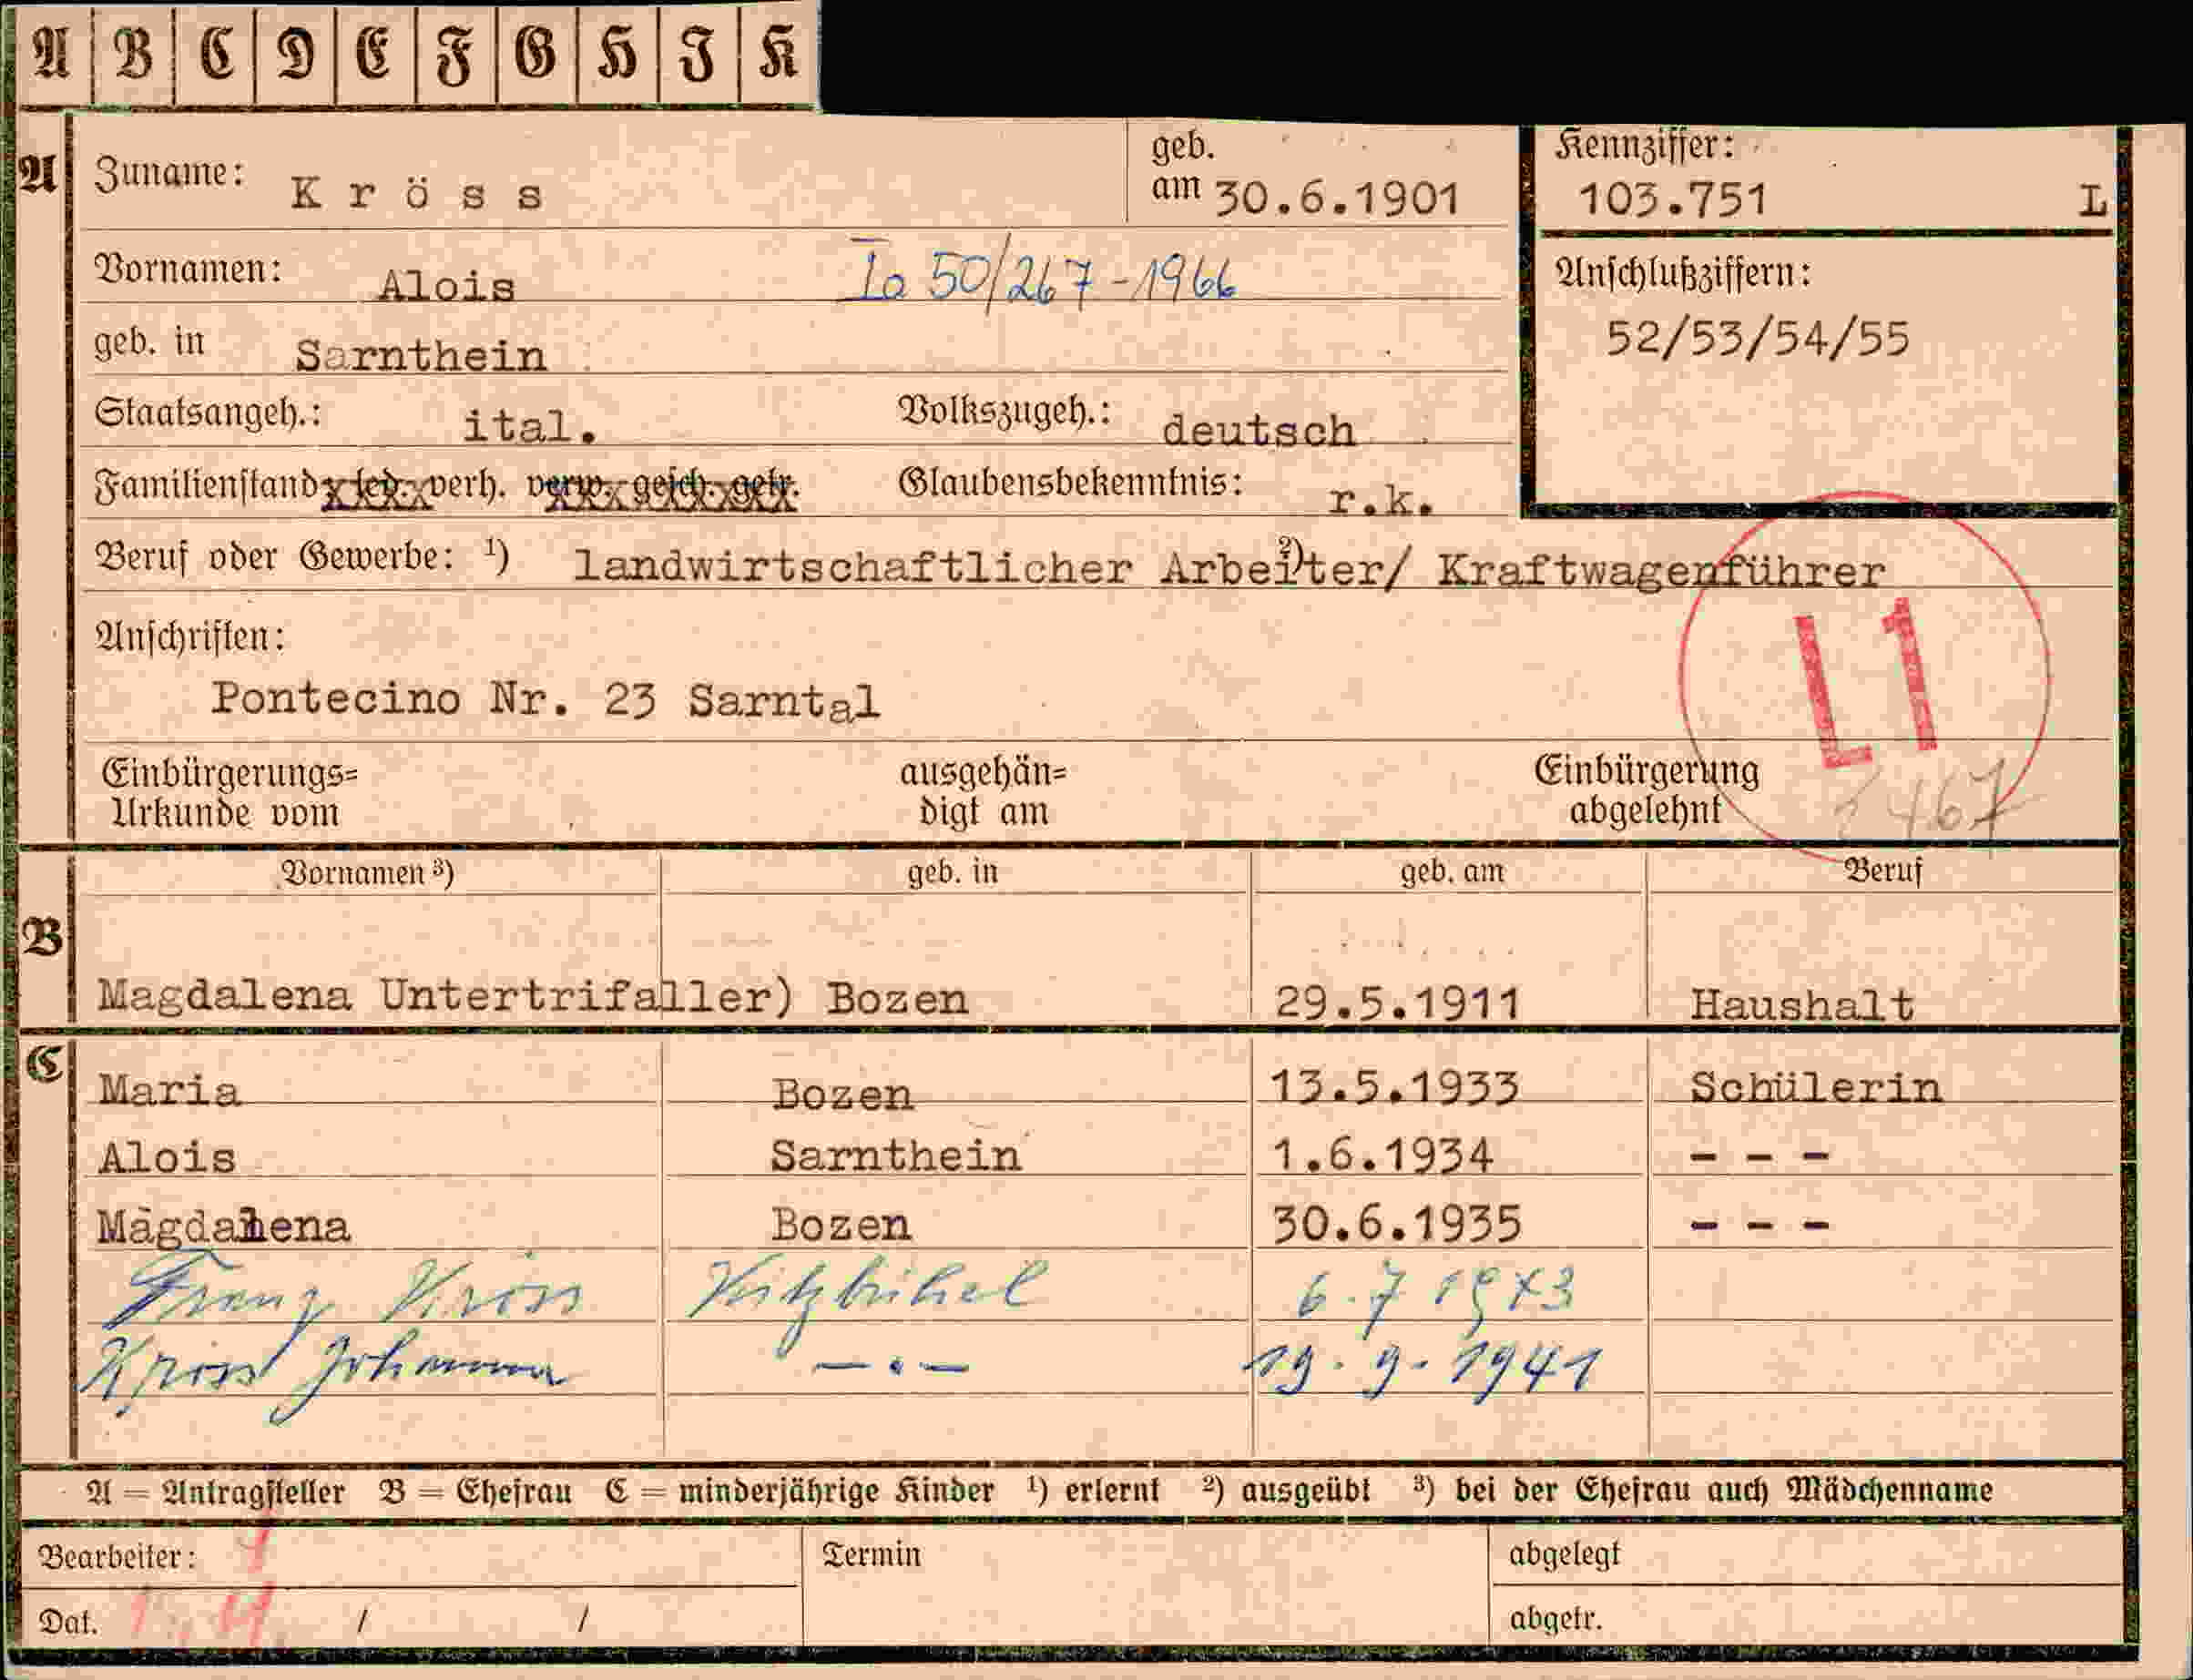 A B C D E F G H I K
A Zuname: Kröss geb. am 30.6.1901 Kennziffer: 103.751 L
Vornamen: Alois Ia 50/267-1966 Anschlußziffern:
geb. in Sarnthein 52/53/54/55
Staatsangeh.: ital. Volkszugeh.: deutsch
Familienstand led. verh. verw. gesch. getr. Glaubensbekenntnis: r.k.
Beruf oder Gewerbe: ¹) landwirtschaftlicher Arbeiter/ ²) Kraftwagenführer
Anschriften:
L1
Pontecino Nr. 23 Sarntal
Einbürgerungs= ausgehän= Einbürgerung
Urkunde vom digt am abgelehnt 2467
Vornamen ³) geb. in geb. am Beruf
B
Magdalena Untertrifaller) Bozen 29.5.1911 Haushalt
C
Maria Bozen 13.5.1933 Schülerin
Alois Sarnthein 1.6.1934 - - -
Magdalena Bozen 30.6.1935 - - -
Franz Kröss Kitzbühel 6.7 1943
Kröss Johanna —.— 19.9.1941
A = Antragsteller B = Ehefrau C = minderjährige Kinder ¹) erlernt ²) ausgeübt ³) bei der Ehefrau auch Mädchenname
Bearbeiter: Termin abgelegt
Dat. / / abgetr.